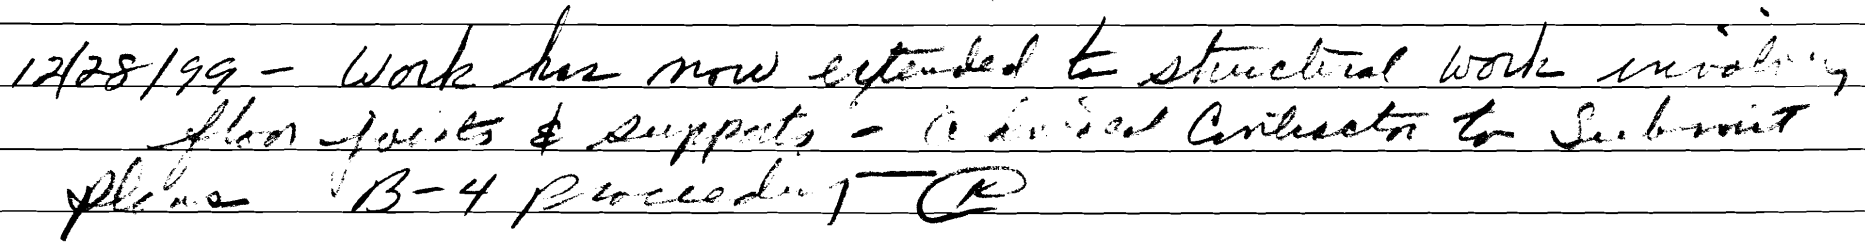 12/28/99 - Work has now extended to structural work involving
floor joists & supports - Advised Contractor to Submit
plans B-4 proceeding - K